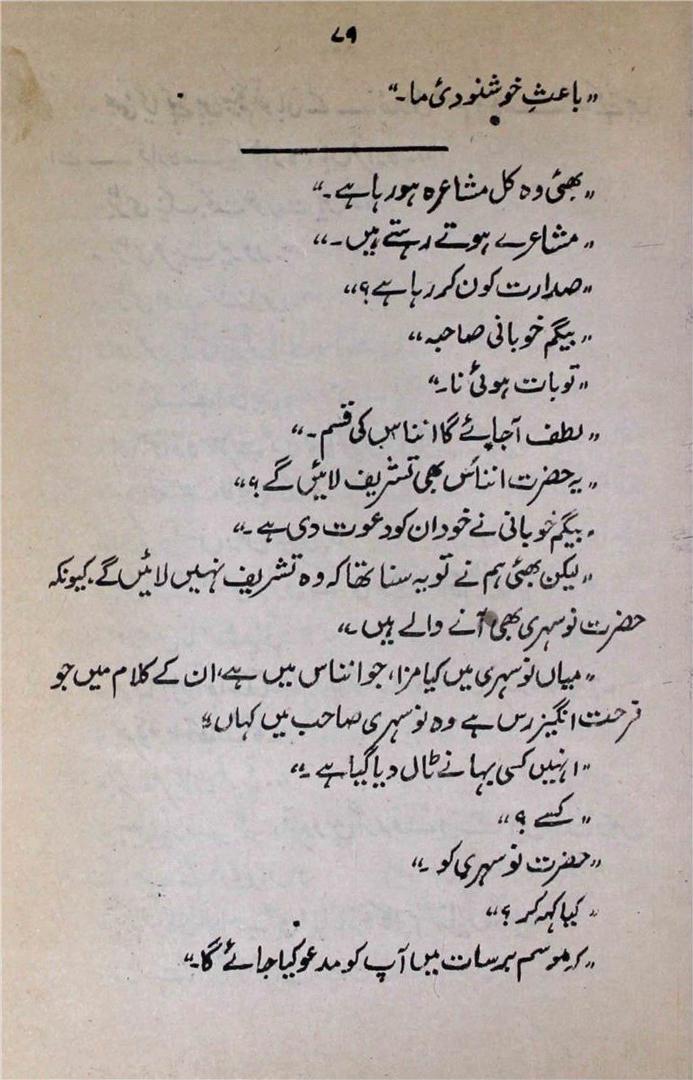 ۷۹
"باعثِ خوشنودیٔ ما۔"
"بھئی وہ کل مشاعرہ ہو رہا ہے۔"
"مشاعرے ہوتے رہتے ہیں۔"
"صدارت کون کر رہا ہے؟"
"بیگم خوبانی صاحبہ"
"تو بات ہوئی نا۔"
"لطف آجائے گا انناس کی قسم۔"
"یہ حضرت انناس بھی تشریف لائیں گے؟"
"بیگم خوبانی نے خود ان کو دعوت دی ہے۔"
"لیکن بھئی ہم نے تو یہ سنا تھا کہ وہ تشریف نہیں لائیں گے، کیونکہ
حضرت نوسہری بھی آنے والے ہیں۔"
"میاں نوسہری میں کیا مزا، جو انناس میں ہے، ان کے کلام میں جو
فرحت انگیز رس ہے وہ نوسہری صاحب میں کہاں"
"انہیں کسی بہانے ٹال دیا گیا ہے۔"
"کسے؟"
"حضرت نوسہری کو۔"
"کیا کہہ کر؟"
"کہ موسم برسات میں آپ کو مدعو کیا جائے گا۔"